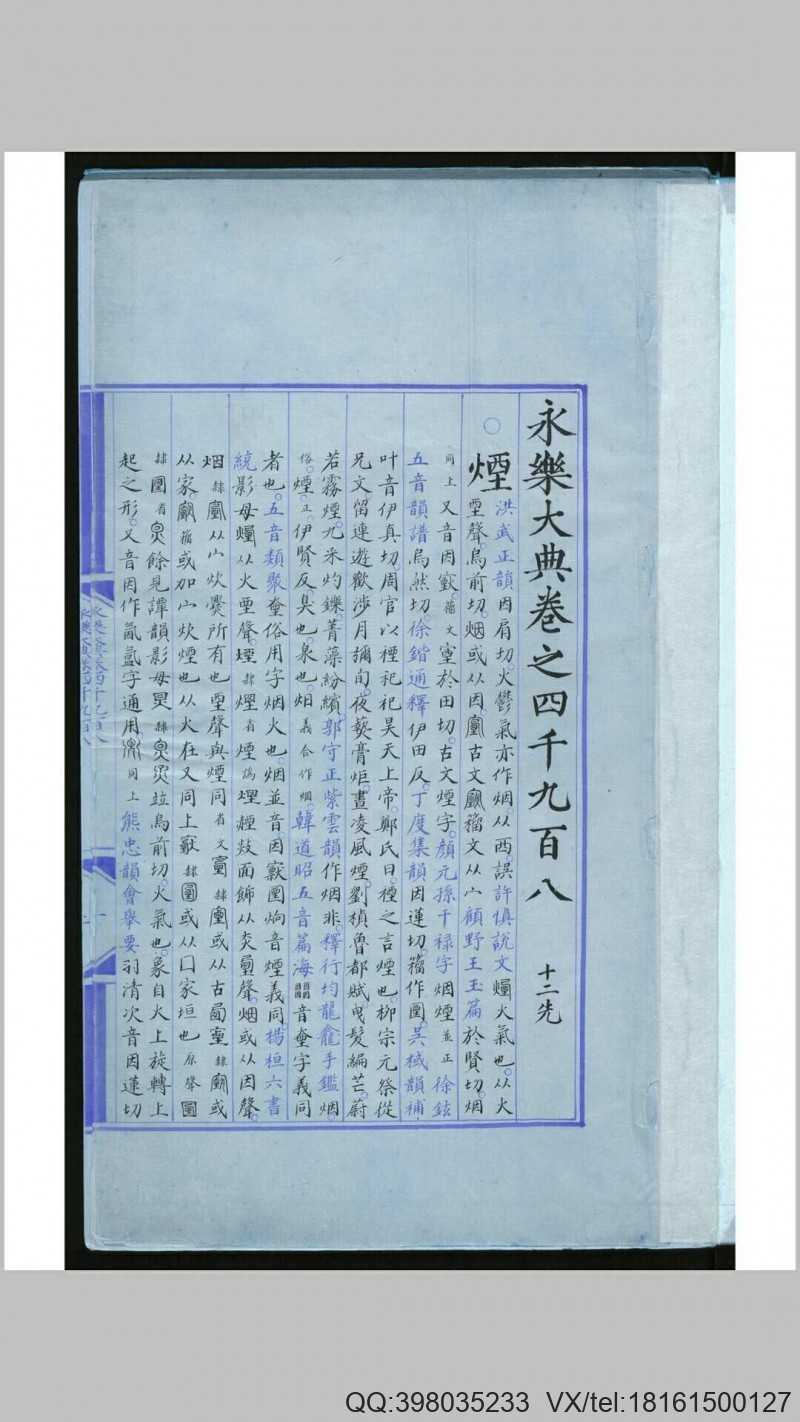 永樂大典卷之四千九百八 十二先
煙 洪武正韻因肩切火鬱氣亦作烟从西誤許慎說文㷑火氣也从火
垔聲烏前切烟或从因古文籀文从宀顧野王玉篇於賢切烟
同上又音因籀文於田切古文煙字顏元孫干禄字烟煙並正徐鉉
五音韻譜烏然切徐鍇通釋伊田反丁度集韻因蓮切籀作吳棫韻補
叶音伊真切周官以禋祀祀昊天上帝鄭氏曰禋之言煙也柳宗元祭從
兄文留連遊歡涉月彌旬夜爇膏炬晝凌風煙劉楨魯都賦曳髮編芒蔚
若霧煙九采灼鑠菁藻紛繽郭守正紫雲韻作烟非釋行均龍龕手鑑烟
俗煙正伊賢反臭也義合作烟韓道昭五音篇海音字義同
者也五音類聚俗用字烟火也烟並音因音煙義同楊桓六書
統影母从火垔聲煙隸省煙譌面飾从聲烟或从因聲
烟隸从宀炊爨所有也垔聲與煙同省文隸或从古隸或
从家籀或加宀炊煙也从火在又同上隸或从囗家垣也原舉
隸省餘見譚韻影母隸竝烏前切火氣也象自火上旋轉上
起之形又音因作氤氲字通用同上熊忠韻會舉要羽清次音因蓮切
永樂大典卷四千九百八
一
QQ:398035233 VX/tel:18161500127